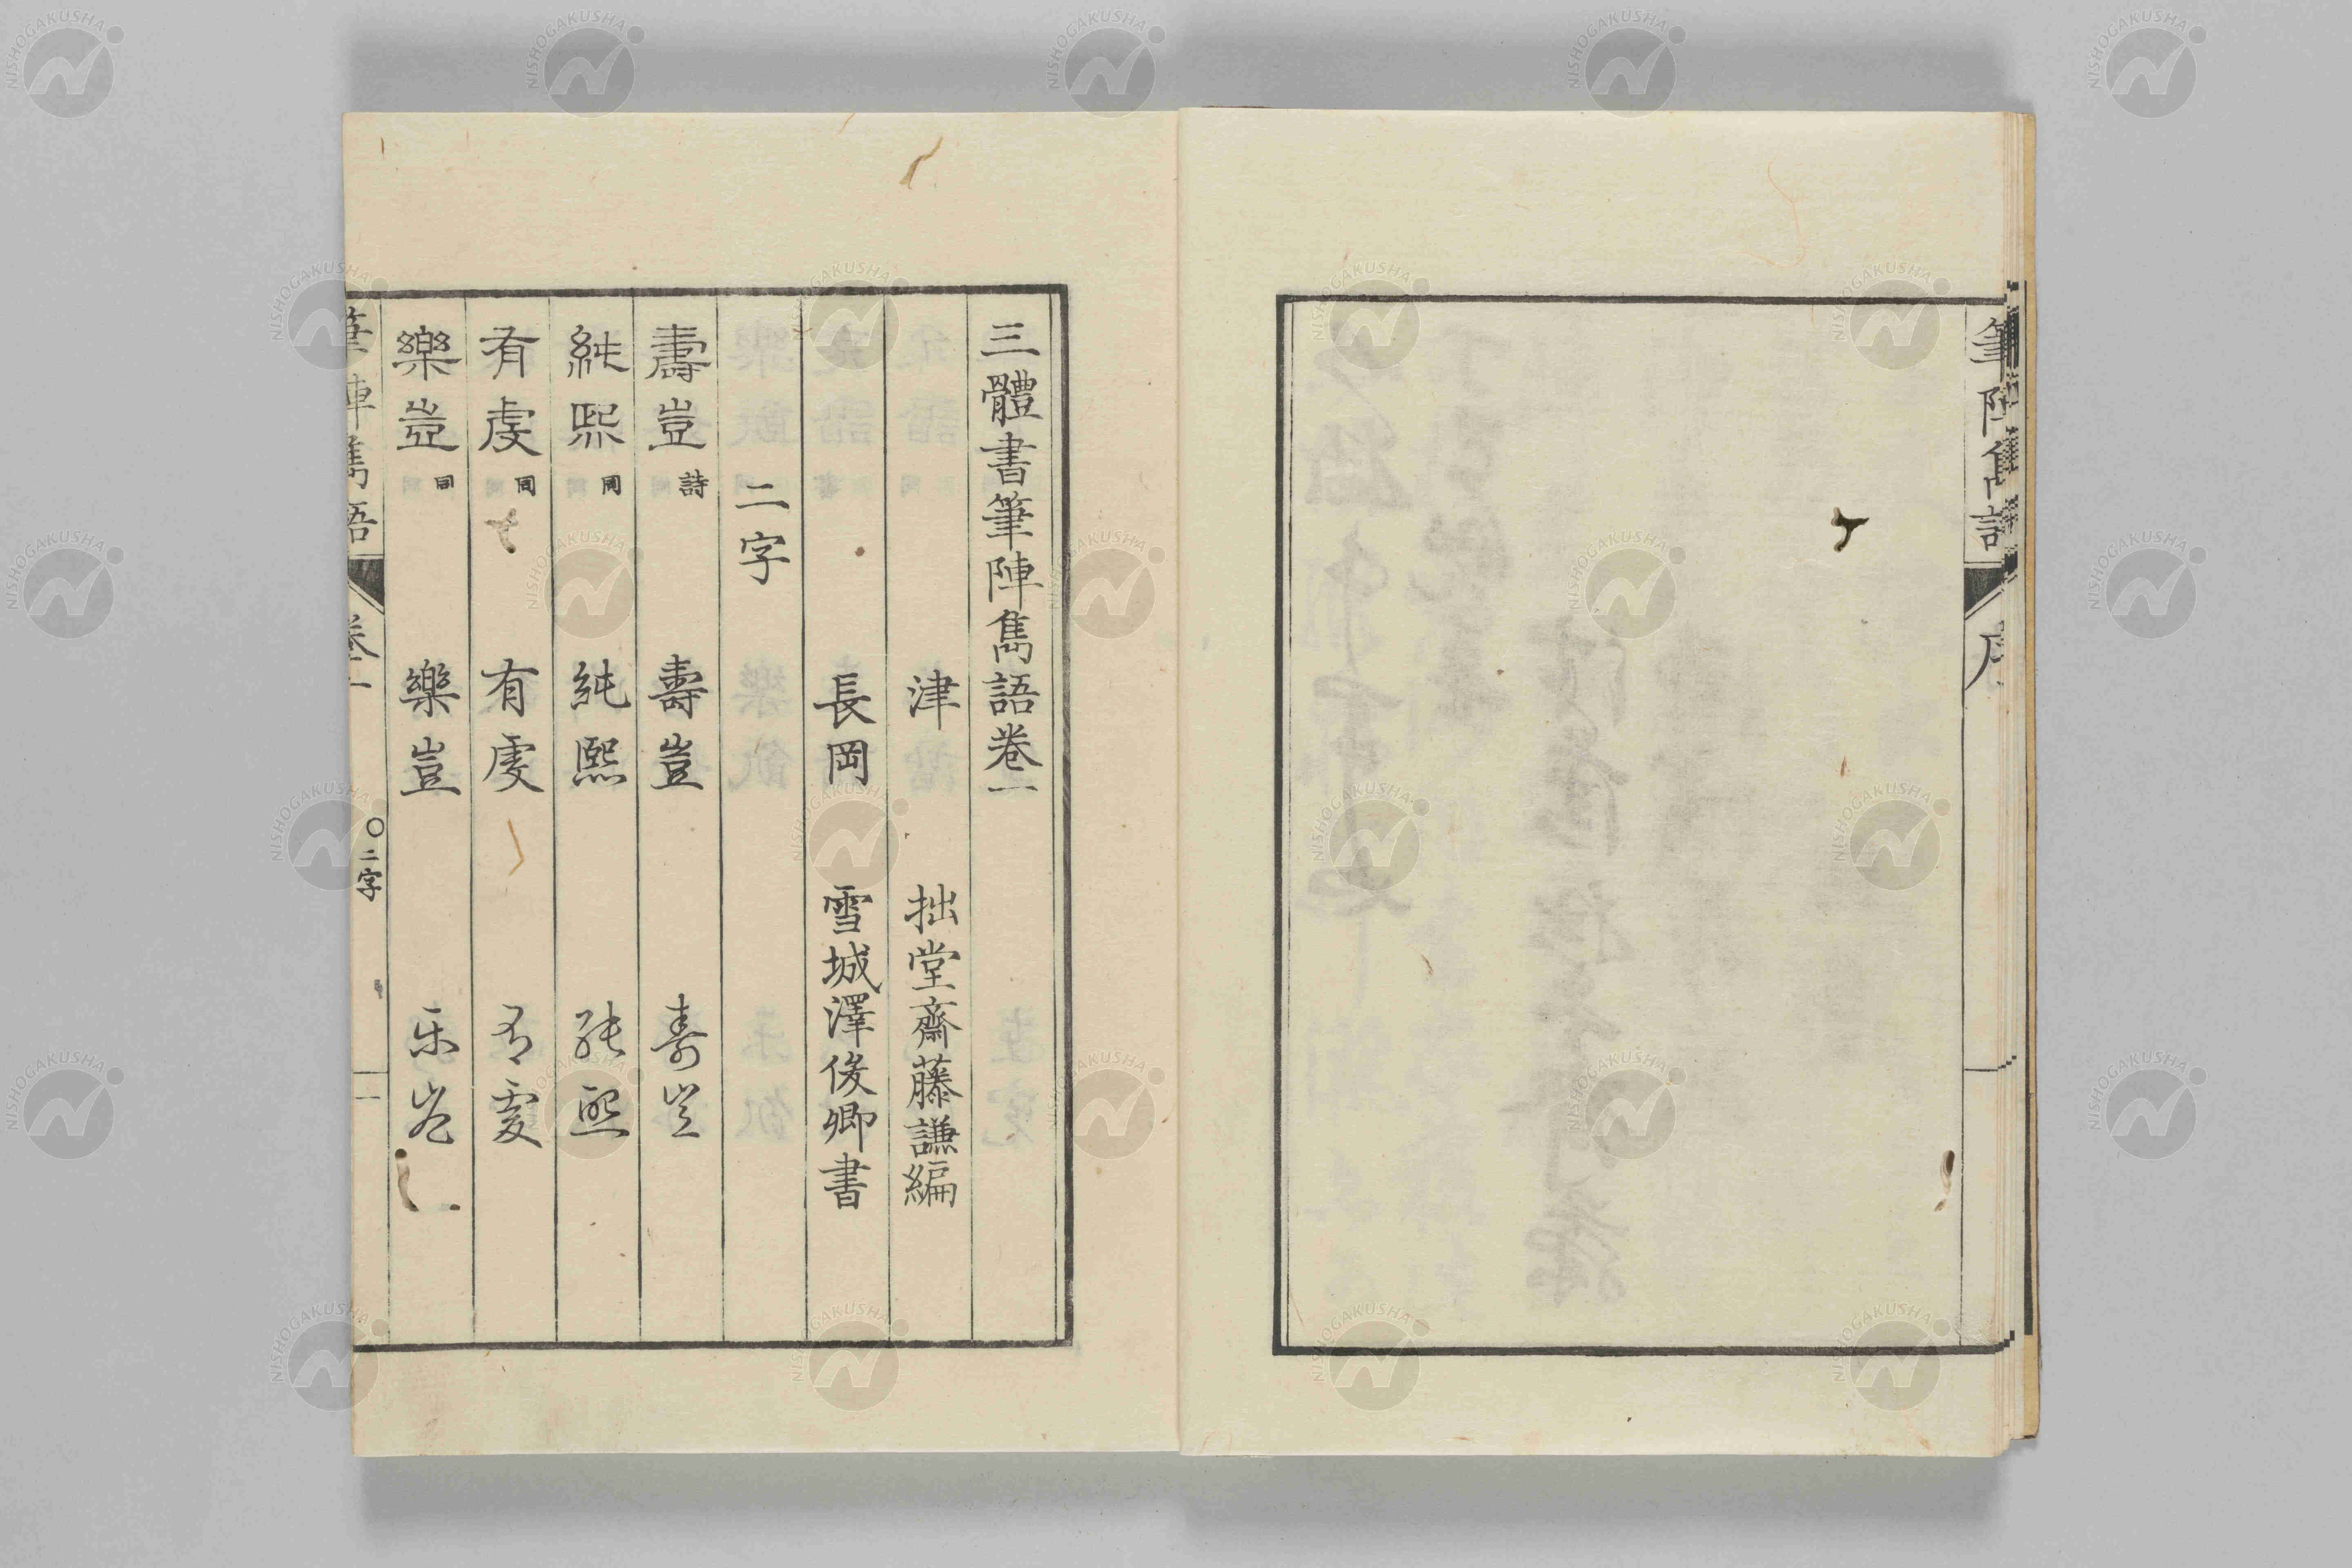 筆陣雋語 序
三體書筆陣雋語卷一
津 拙堂齋藤謙編
長岡 雪城澤俊卿書
二字
壽豈 詩 壽豈 壽豈
純熙 同 純熙 純熙
有虔 同 有虔 有虔
樂豈 同 樂豈 樂豈
筆陣雋語 卷一 〇二字 一
NISHOGAKUSHA